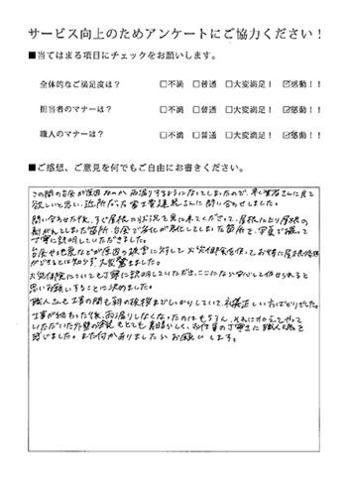 サービス向上のためアンケートにご協力ください！
■当てはまる項目にチェックをお願いします。
全体的なご満足度は？ □不満 □普通 □大変満足！ ☑感動！！
担当者のマナーは？ □不満 □普通 □大変満足！ ☑感動！！
職人のマナーは？ □不満 □普通 □大変満足！ ☑感動！！
■ご感想、ご意見を何でもご自由にお書きください。
この間の台風が原因なのか、雨漏りするようになってしまったので、業者さんに見て
欲しいと思い、近所だった富士普建装さんに問い合わせしました。
問い合わせた後、すぐ屋根の状況を見に来てくださって、屋根に上り屋根の
剥がれてしまった箇所、台風で劣化が悪化してしまった箇所を、写真で撮って
丁寧に説明していただきました。
台風や地震などが原因の被害に対して火災保険を使って、お得に屋根修理
ができるとは知らず大変驚きました。
火災保険についても丁寧に説明していただき、ここなら安心して任せられると
思いお願いすることに決めました。
職人さんも工事の間も朝の挨拶までしっかりしていて、礼儀正しい方ばかりでした。
工事が終わった後、雨漏りしなくなったのはもちろん、それにかえてやって
いただいた外壁の塗装もとても素晴らしく、お仕事の丁寧さに職人魂を
感じました。また何かありましたらお願いします。